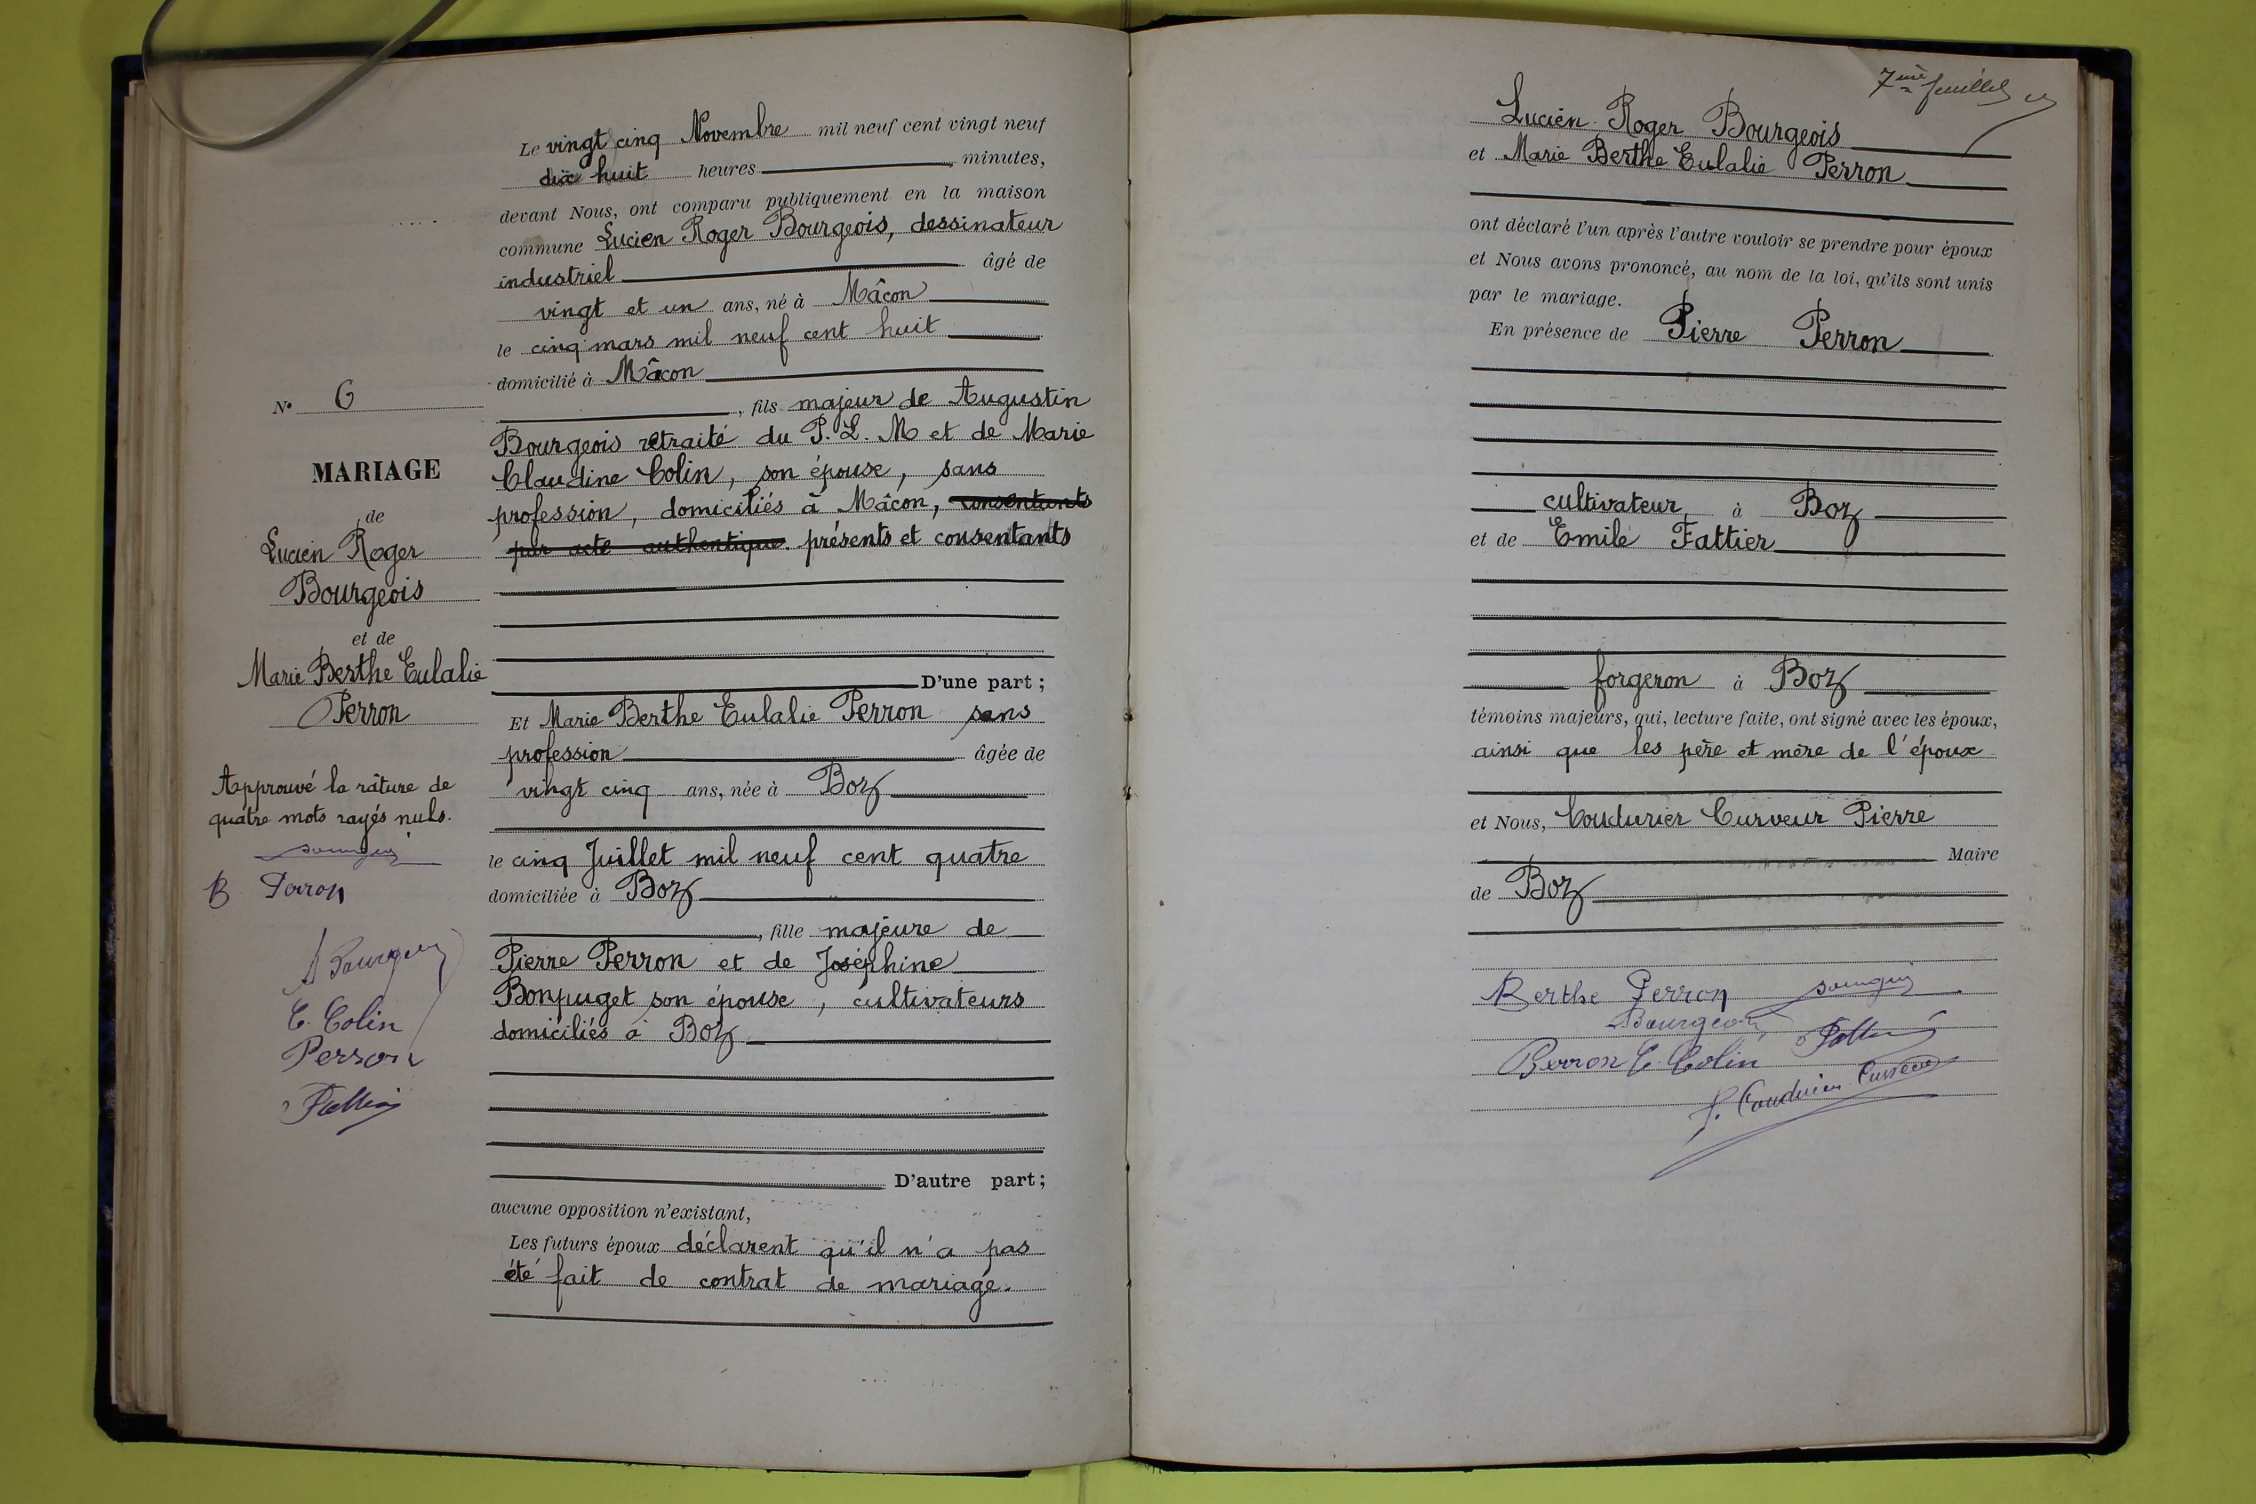 N° 6
MARIAGE
de
Lucien Roger
Bourgeois
et de
Marie Berthe Eulalie
Perron
Approuvé la râture de
quatre mots rayés nuls.
B Perron
A Bourgeois
C. Colin
Perron
Fattier
Le vingt cinq Novembre mil neuf cent vingt neuf
dix huit heures minutes,
devant Nous, ont comparu publiquement en la maison
commune Lucien Roger Bourgeois, dessinateur
industriel âgé de
vingt et un ans, né à Mâcon
le cinq mars mil neuf cent huit
domicilié à Mâcon
, fils majeur de Augustin
Bourgeois retraité du P. L. M et de Marie
Claudine Colin, son épouse, sans
profession, domiciliés à Mâcon, consentants
par acte authentique. présents et consentants
D'une part ;
Et Marie Berthe Eulalie Perron sans
profession âgée de
vingt cinq ans, née à Boz
le cinq Juillet mil neuf cent quatre
domiciliée à Boz
, fille majeure de
Pierre Perron et de Joséphine
Bonpuget son épouse, cultivateurs
domiciliés à Boz
D'autre part ;
aucune opposition n'existant,
Les futurs époux déclarent qu'il n'a pas
été fait de contrat de mariage.
7ème feuillet
Lucien Roger Bourgeois
et Marie Berthe Eulalie Perron
ont déclaré l'un après l'autre vouloir se prendre pour époux
et Nous avons prononcé, au nom de la loi, qu'ils sont unis
par le mariage.
En présence de Pierre Perron
cultivateur à Boz
et de Emile Fattier
forgeron à Boz
témoins majeurs, qui, lecture faite, ont signé avec les époux,
ainsi que les père et mère de l'époux
et Nous, Coudurier Curveur Pierre
Maire
de Boz
Berthe Perron
Bourgeois Fattier
Perron C. Colin
P. Coudurier Curveur